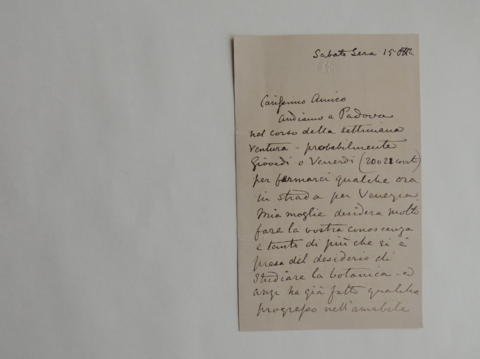 Sabato Sera 15 Ott.
Carissimo Amico
Andiamo a Padova
nel corso della settimana
ventura - probabilmente
Giovedì o Venerdì (20 o 21 cort)
per fermarci qualche ora
in strada per Venezia
Mia moglie desidera molto
fare la vostra conoscenza
e tanto di più che si è
presa del desiderio di
studiare la botanica - ed
anzi ha già fatto qualche
progresso nell'amabile